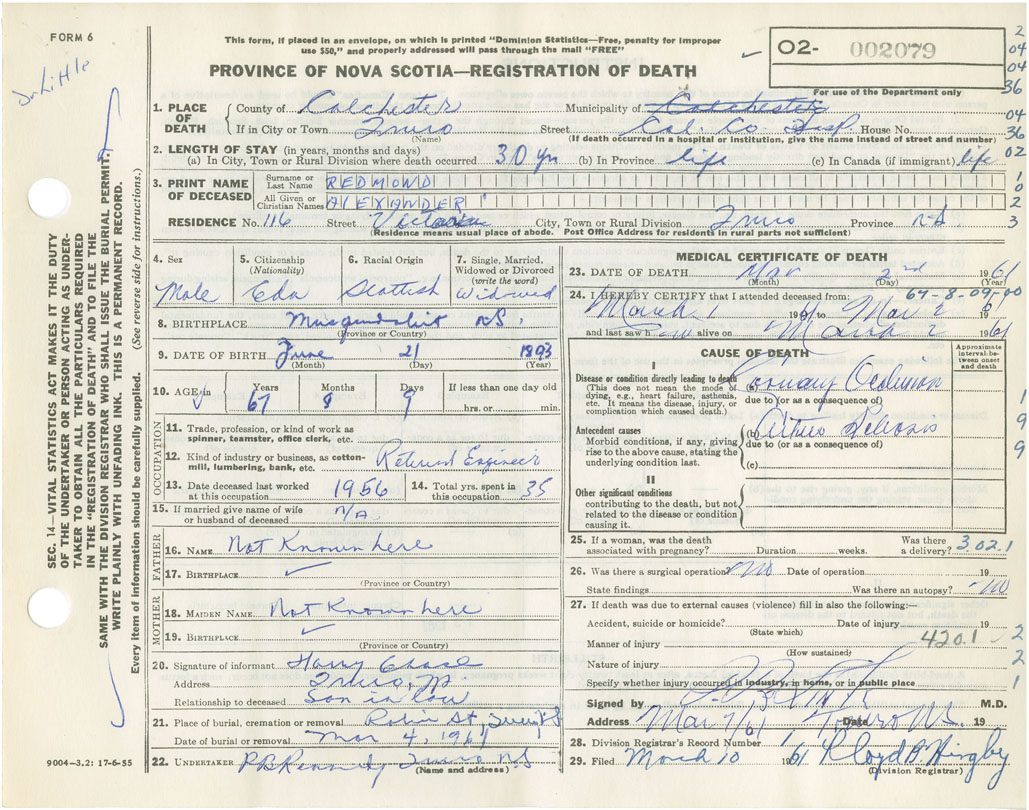 FORM 6
Dr Little
This form, if placed in an envelope, on which is printed "Dominion Statistics—Free, penalty for improper
use $50," and properly addressed will pass through the mail "FREE"
O2- 002079
PROVINCE OF NOVA SCOTIA—REGISTRATION OF DEATH
For use of the Department only
2
04
04
36
04
36
02
1
0
2
3
SEC. 14—VITAL STATISTICS ACT MAKES IT THE DUTY
OF THE UNDERTAKER OR PERSON ACTING AS UNDER-
TAKER TO OBTAIN ALL THE PARTICULARS REQUIRED
IN THE "REGISTRATION OF DEATH" AND TO FILE THE
SAME WITH THE DIVISION REGISTRAR WHO SHALL ISSUE THE BURIAL PERMIT.
WRITE PLAINLY WITH UNFADING INK. THIS IS A PERMANENT RECORD.
Every item of information should be carefully supplied. (See reverse side for instructions.)
1. PLACE OF DEATH County of Colchester Municipality of Colchester
If in City or Town Truro Street Col. Co. Hosp. House No.
(Name) (If death occurred in a hospital or institution, give the name instead of street and number)
2. LENGTH OF STAY (in years, months and days)
(a) In City, Town or Rural Division where death occurred 30 yrs (b) In Province life (c) In Canada (if immigrant) life
3. PRINT NAME OF DECEASED Surname or Last Name REDMOND
All Given or Christian Names ALEXANDER
RESIDENCE No. 116 Street Victoria City, Town or Rural Division Truro Province N.S
(Residence means usual place of abode. Post Office Address for residents in rural parts not sufficient)
4. Sex 5. Citizenship (Nationality) 6. Racial Origin 7. Single, Married, Widowed or Divorced (write the word)
Male Cdn Scottish Widowed
8. BIRTHPLACE N.S.
(Province or Country)
9. DATE OF BIRTH June 21 1893
(Month) (Day) (Year)
10. AGE in Years Months Days If less than one day old
67 8 9 hrs. or min.
OCCUPATION
11. Trade, profession, or kind of work as
spinner, teamster, office clerk, etc.
12. Kind of industry or business, as cotton-
mill, lumbering, bank, etc. Retired Engineer
13. Date deceased last worked at this occupation 1956 14. Total yrs. spent in this occupation 35
15. If married give name of wife
or husband of deceased N/A
FATHER
16. NAME Not Known here
17. BIRTHPLACE
(Province or Country)
MOTHER
18. MAIDEN NAME Not Known here
19. BIRTHPLACE
(Province or Country)
20. Signature of informant Harry Chase
Address Truro,
Relationship to deceased Son in law
21. Place of burial, cremation or removal Robie St, Truro NS
Date of burial or removal Mar 4, 1961
22. UNDERTAKER Truro NS
(Name and address)
9004—3.2: 17-6-55
MEDICAL CERTIFICATE OF DEATH
23. DATE OF DEATH Mar 2nd 1961
(Month) (Day) (Year)
67-8-09-00
24. I HEREBY CERTIFY that I attended deceased from:
March 1 1961 to Mar 2
and last saw h alive on March 2 1961
CAUSE OF DEATH
Approximate interval between onset and death
I
Disease or condition directly leading to death
(This does not mean the mode of
dying, e.g., heart failure, asthenia,
etc. It means the disease, injury, or
complication which caused death.)
(a) Coronary Occlusion
due to (or as a consequence of)
Antecedent causes
Morbid conditions, if any, giving
rise to the above cause, stating the
underlying condition last.
(b) Arterio Sclerosis
due to (or as a consequence of)
(c)
1
9
9
II
Other significant conditions
contributing to the death, but not
related to the disease or condition
causing it.
25. If a woman, was the death
associated with pregnancy? Duration weeks. Was there a delivery? 3.02.1
26. Was there a surgical operation? No Date of operation 19
State findings Was there an autopsy? No
27. If death was due to external causes (violence) fill in also the following:—
Accident, suicide or homicide? Date of injury 19
(State which)
Manner of injury 420.1
(How sustained)
Nature of injury
Specify whether injury occurred in industry, in home, or in public place
2
2
1
Signed by M.D.
Address Mar 7/61 Truro N.S. Date 19
28. Division Registrar's Record Number
29. Filed March 10 1961 Lloyd
(Division Registrar)